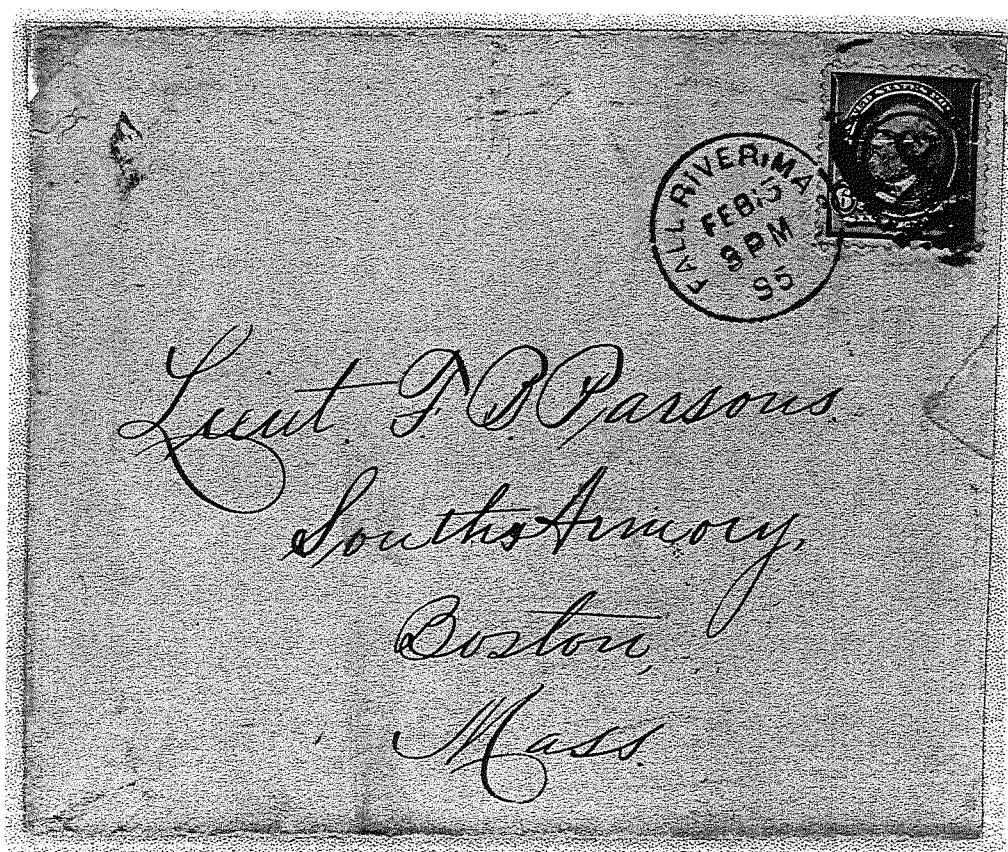 FALL RIVER, MA
FEB 15
PM
95
Lieut F B Parsons
South Armory,
Boston,
Mass.